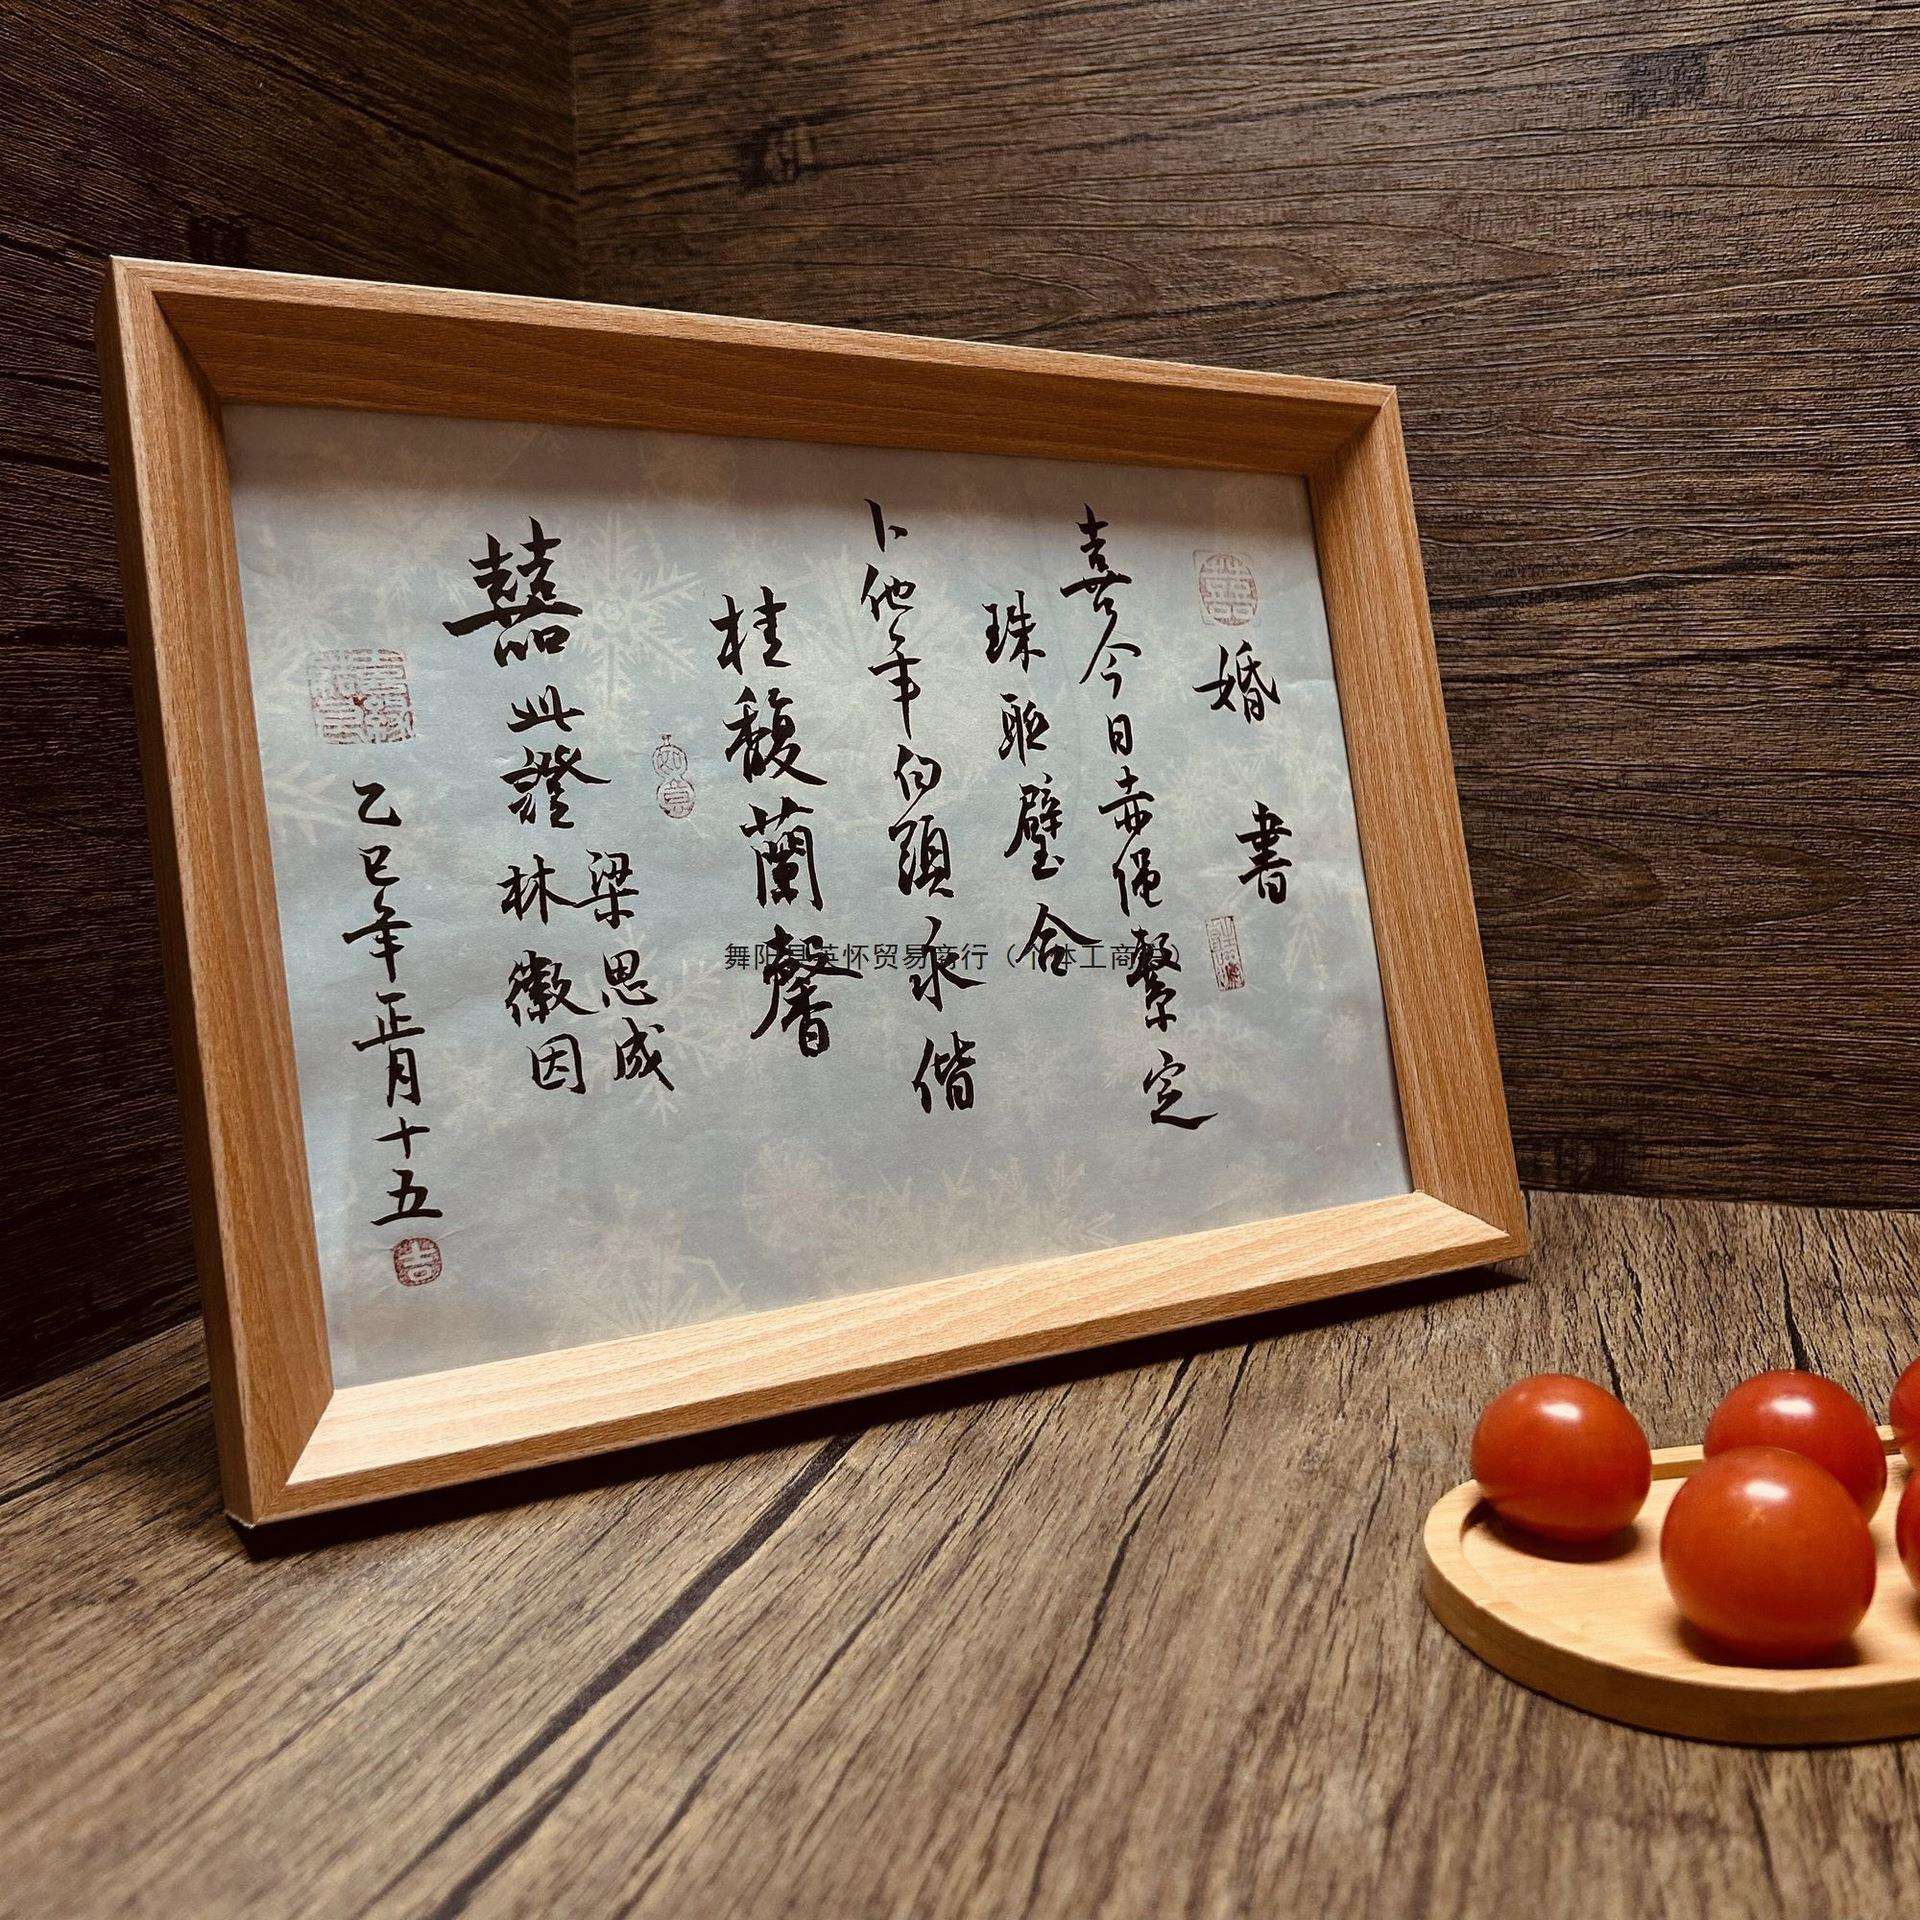 婚書
喜今日赤繩繫定
珠聯璧合
卜他年白頭永偕
桂馥蘭馨
如意
梁思成
囍此證 林徽因
乙巳年正月十五
吉
舞阳县英怀贸易商行（个体工商户）